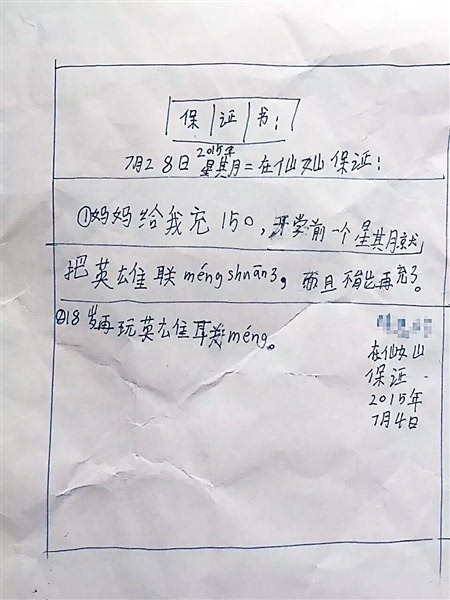 保证书:
2015年
7月28日星其月二在仙女山保证:
①妈妈给我充150,开学前一个星其月就
把英雄联méng shuān3,而且不能再充了。
②18岁再玩英雄联méng。
在仙女山
保证.
2015年
7月4日